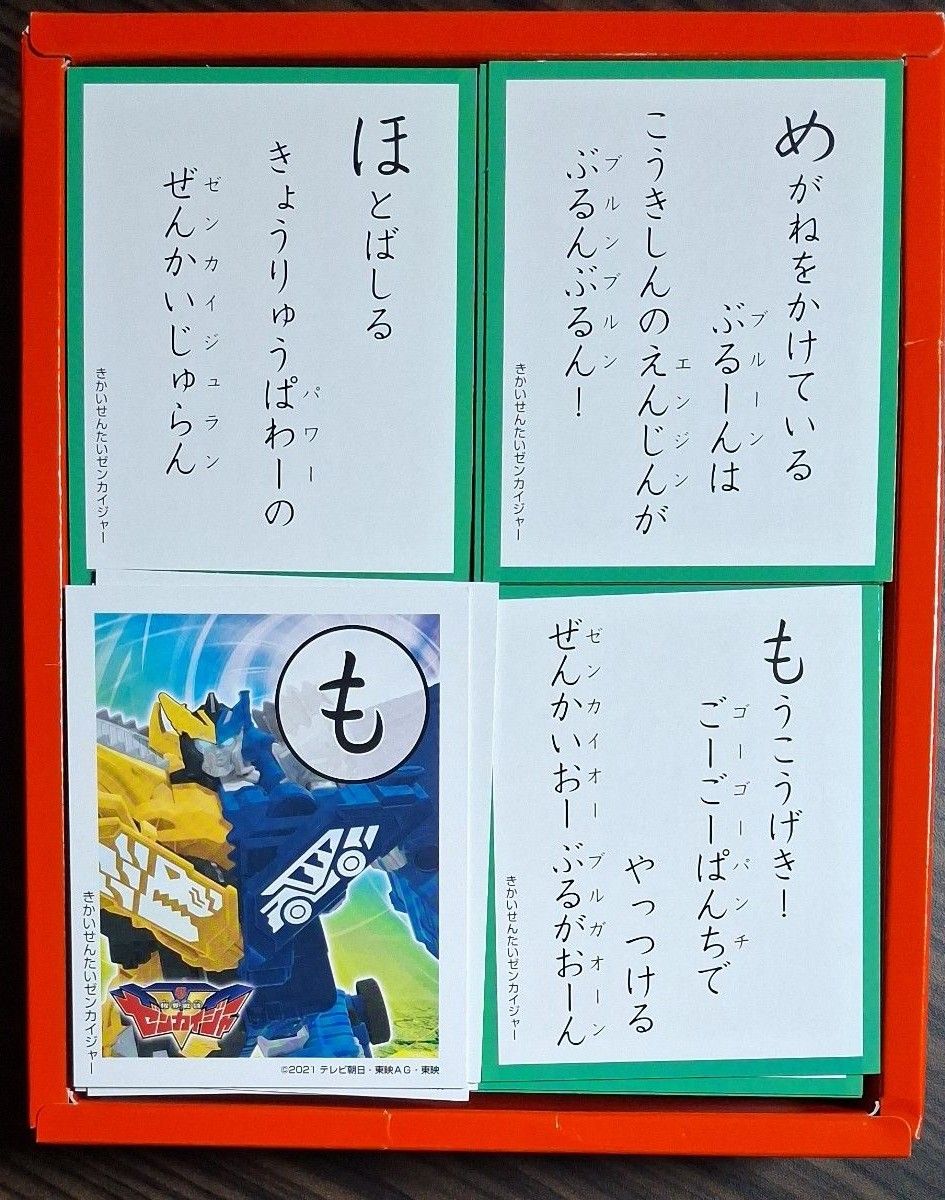 めがねをかけている
ぶるーんは
ブルーン
こうきしんのえんじんが
エンジン
ぶるんぶるん！
ブルンブルン
きかいせんたいゼンカイジャー
ほとばしる
きょうりゅうぱわーの
パワー
ぜんかいじゅらん
ゼンカイジュラン
きかいせんたいゼンカイジャー
もうこうげき！
ごーごーぱんちで
ゴーゴーパンチ
やっつける
ぜんかいおーぶるがおーん
ゼンカイオーブルガオーン
きかいせんたいゼンカイジャー
も
きかいせんたいゼンカイジャー
機界戦隊
ゼンカイジャー
©2021 テレビ朝日・東映AG・東映